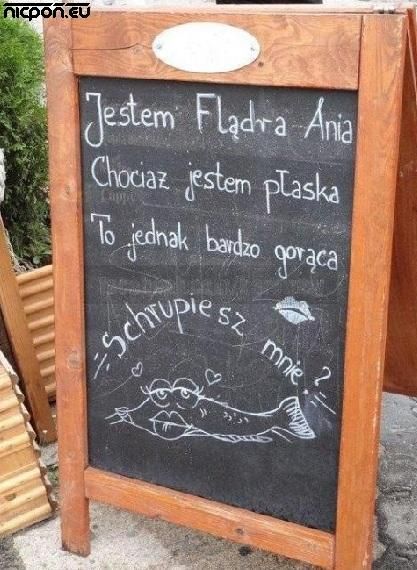 nicpon.eu
Jestem Flądra Ania
Chociaż jestem płaska
To jednak bardzo gorąca
Schrupiesz mnie?